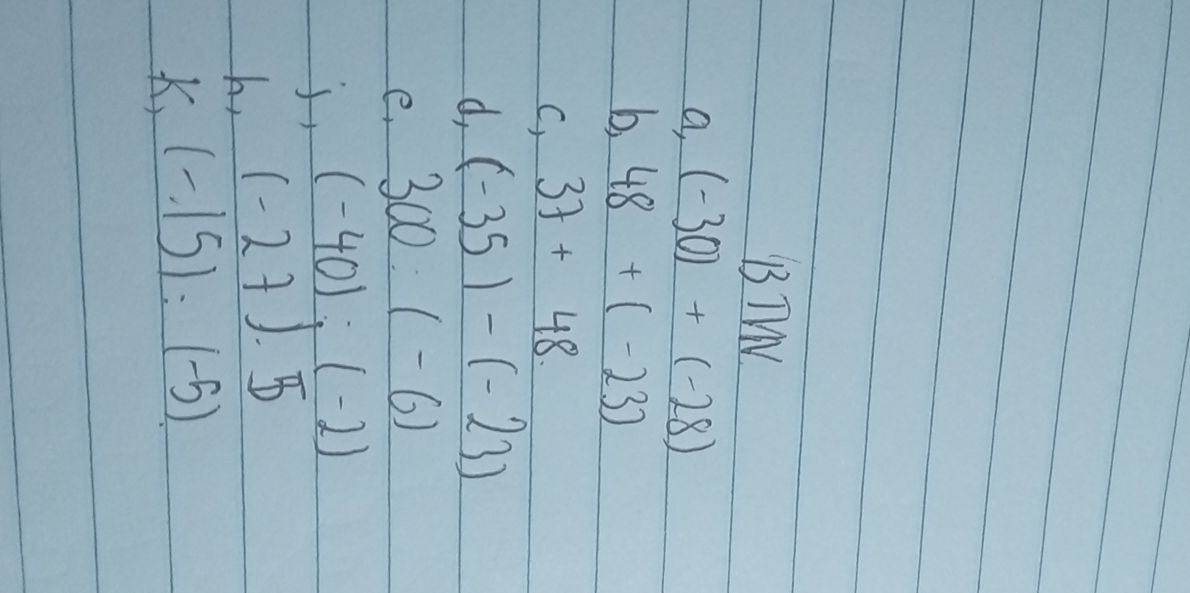 BTVN
a, (-30) + (-28)
b, 48 + (-23)
c, 37 + 48.
d, (-35) - (-23)
e, 300 : (-6)
j, (-40) : (-2)
h, (-27). 5
k, (-15) : (-5).